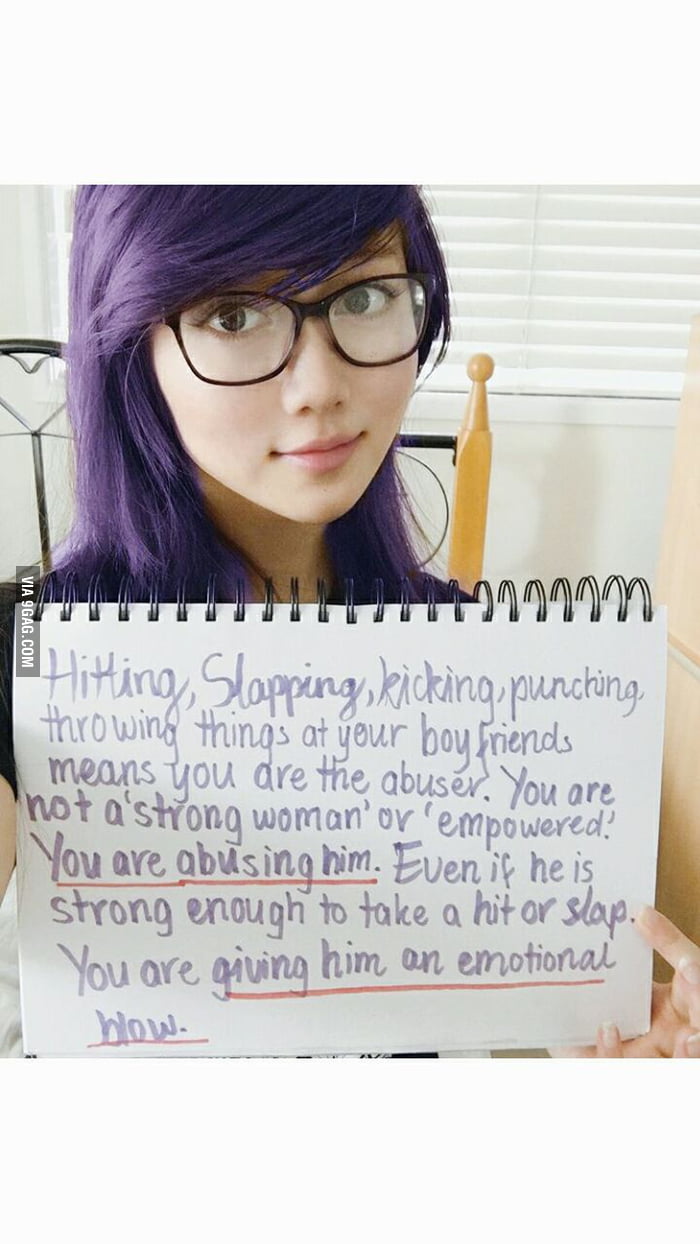 Hitting, Slapping, kicking, punching,
throwing things at your boyfriends
means you are the abuser. You are
not a 'strong woman' or 'empowered.'
You are abusing him. Even if he is
strong enough to take a hit or slap.
You are giving him an emotional
blow.
VIA 9GAG.COM